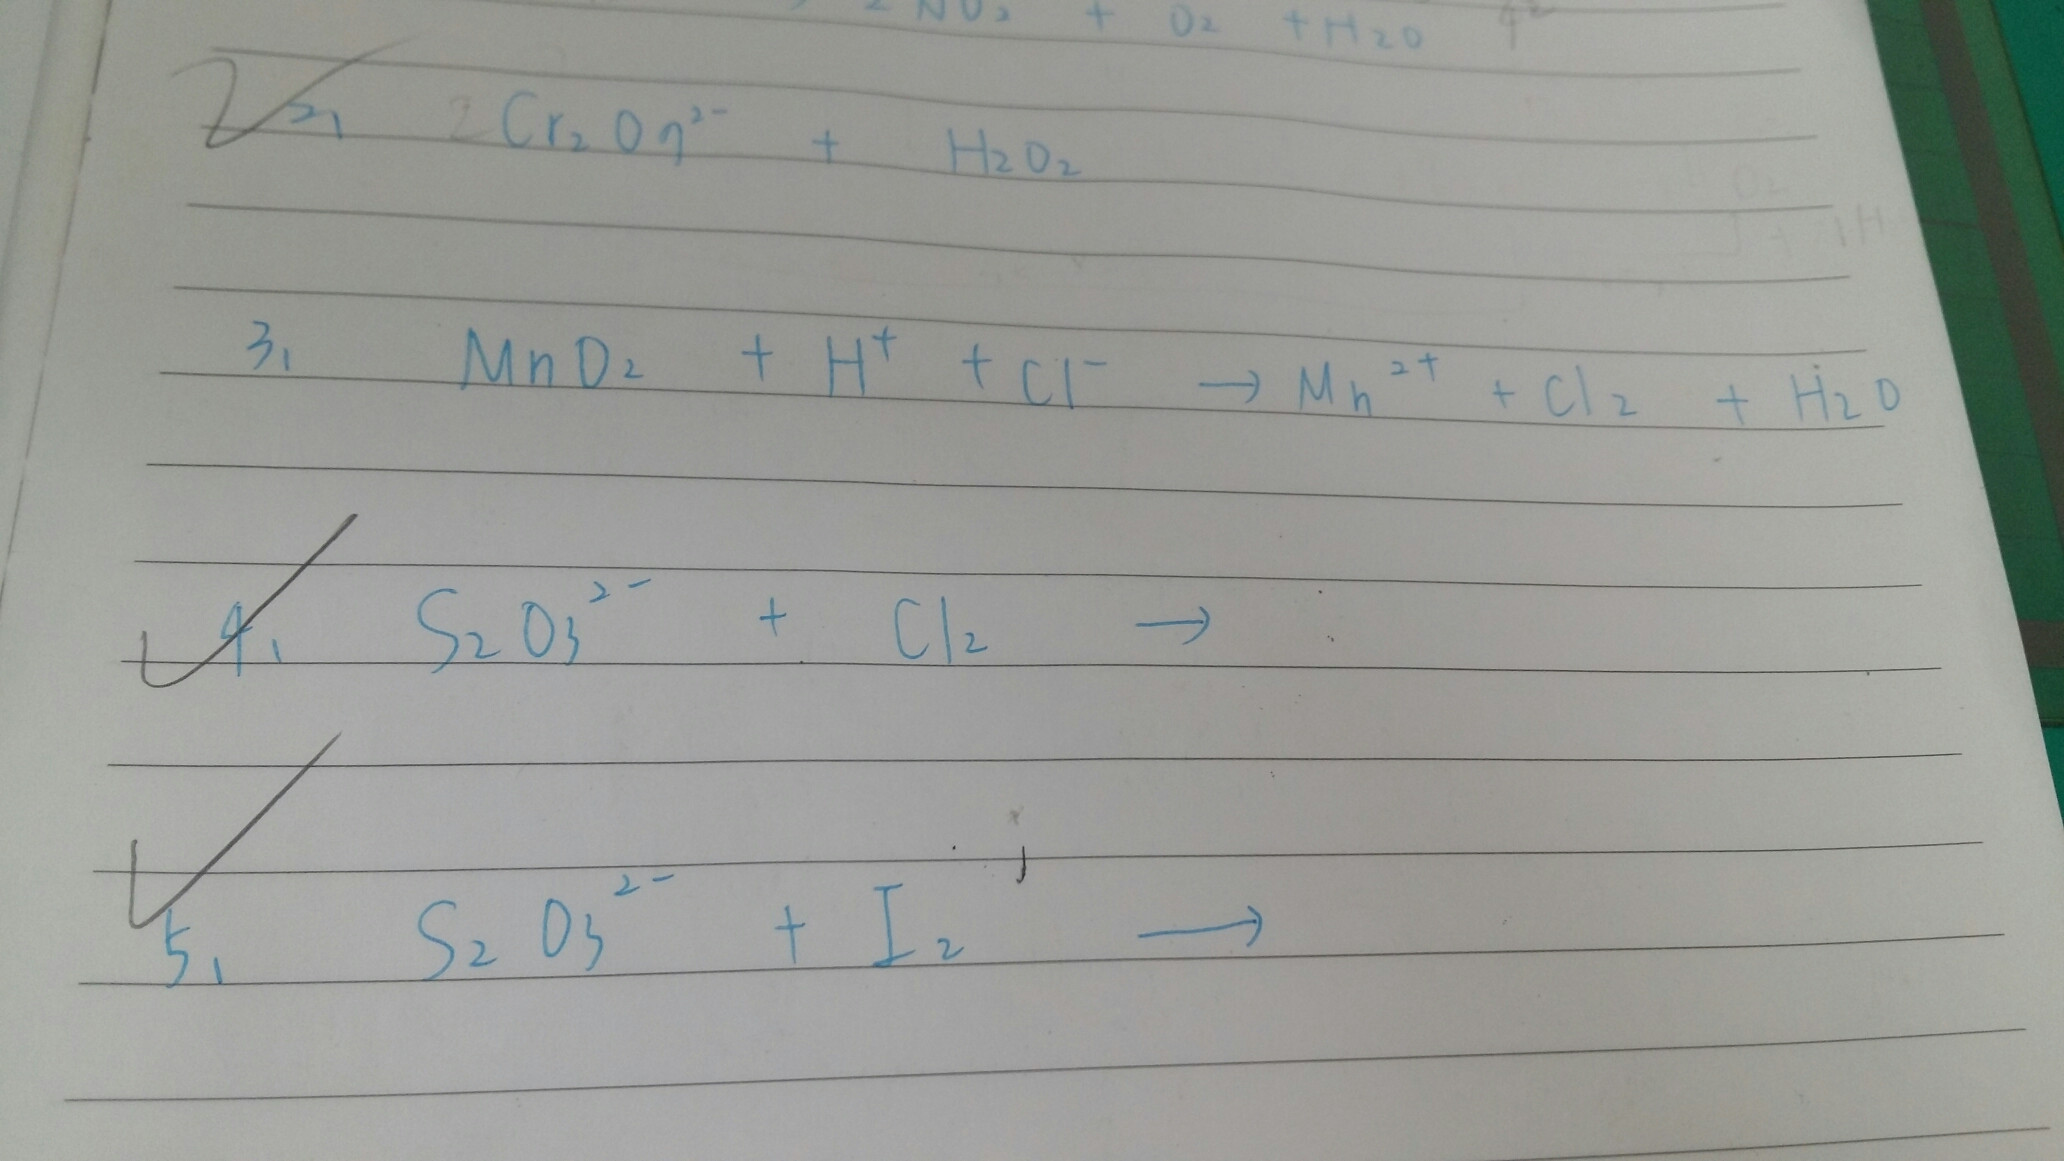 2 NO₂ + O₂ + H₂O
2, 2 Cr₂O₇²⁻ + H₂O₂
3, MnO₂ + H⁺ + Cl⁻ → Mn²⁺ + Cl₂ + H₂O
4, S₂O₃²⁻ + Cl₂ →
5, S₂O₃²⁻ + I₂ →